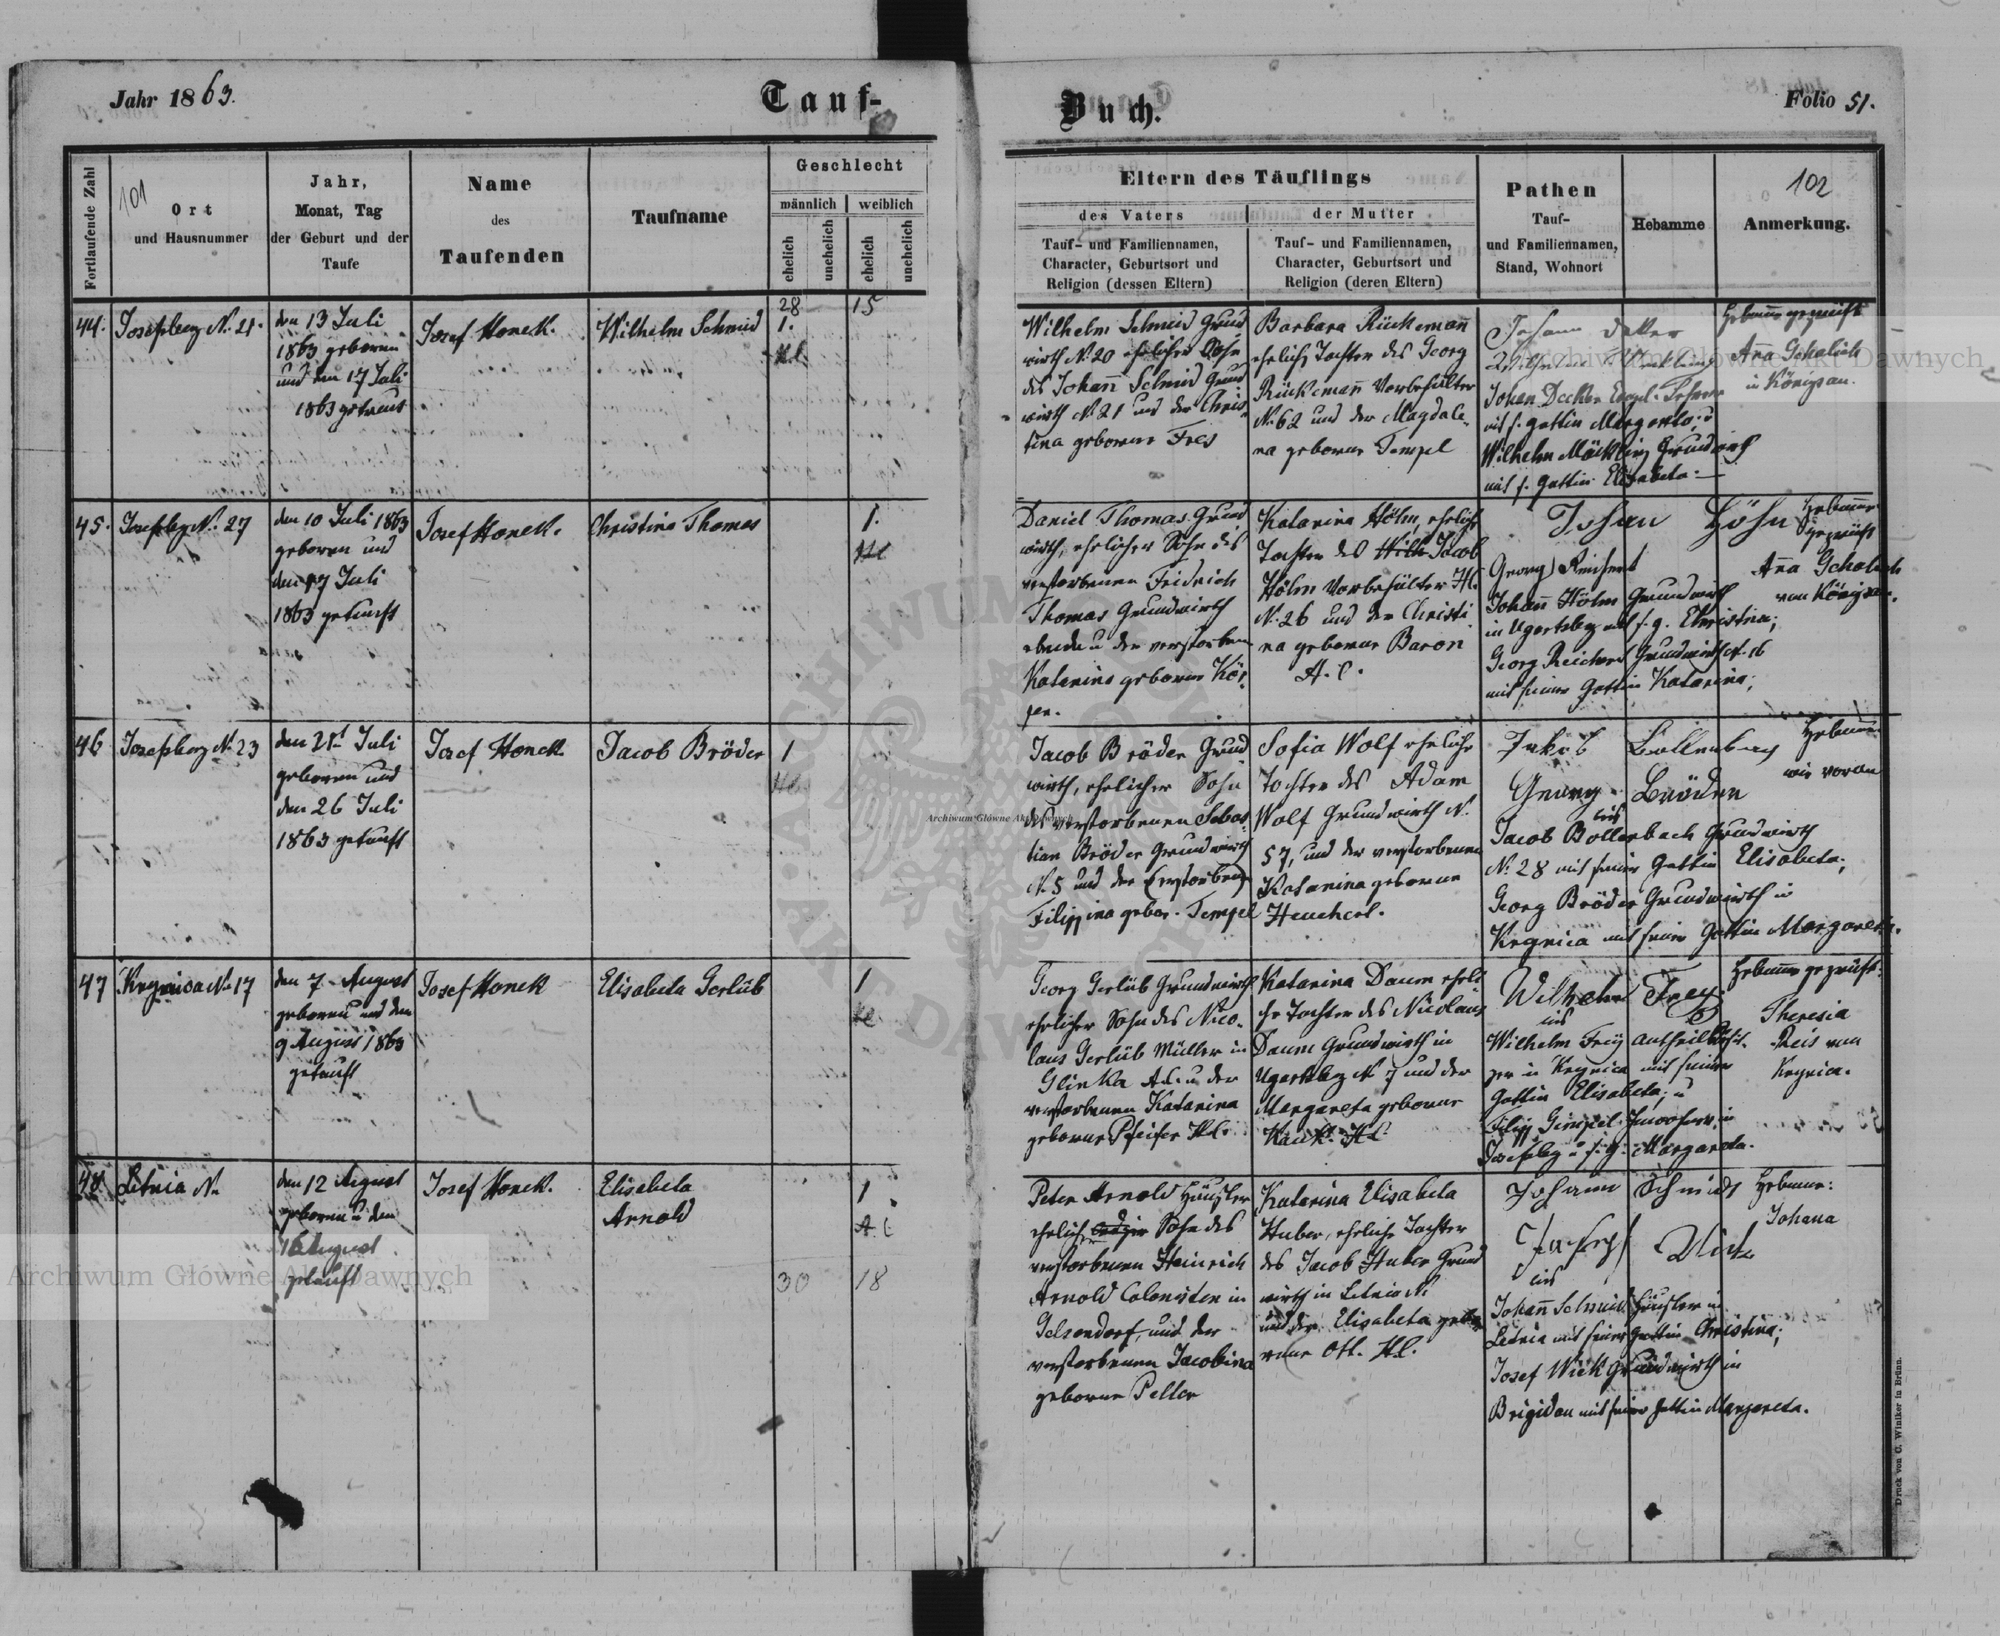 Jahr 1863.
Tauf-
Buch.
Folio 51.
Fortlaufende Zahl
101
Ort
und Hausnummer
Jahr,
Monat, Tag
der Geburt und der
Taufe
Name
des
Taufenden
Taufname
Geschlecht
männlich
weiblich
ehelich
unehelich
ehelich
unehelich
Eltern des Täuflings
des Vaters
der Mutter
Tauf- und Familiennamen,
Character, Geburtsort und
Religion (dessen Eltern)
Tauf- und Familiennamen,
Character, Geburtsort und
Religion (deren Eltern)
Pathen
Tauf-
und Familiennamen,
Stand, Wohnort
Hebamme
102
Anmerkung.
28
15
44.
Josefsberg N. 21.
den 13 Juli
1863 geboren
und den 17 Juli
1863 getauft
Josef Honek.
Wilhelm Schmid
1.
Wilhelm Schmid Grund
wirth N. 20 ehelicher Sohn
des Johann Schmid Grund
wirth N. 21 und der Chris
tina geborene Fres
Barbara Rückemann
eheliche Tochter des Georg
Rückemann Vorbehälter
N. 62 und der Magdale
na geborene Tempel
Johan Decker Evgel. Lehrer
mit s. Gattin Margareta; u
Wilhelm Möckling Grundwirth
mit s. Gattin Elisabeta.
Hebamme geprüft
Anna Schalich
in Königsau.
45.
Josefsberg N. 27
den 10 Juli 1863
geboren und
den 17 Juli
1863 getauft
Josef Honek.
Christina Thomas
1.
Daniel Thomas Grund
wirth, ehelicher Sohn des
verstorbenen Fridrich
Thomas Grundwirth
u der verstorben
Katarina geborene Kör
per.
Katarina Höhn, eheliche
Tochter des Jacob
Höhn Vorbehälter
N. 26 und der Christi
na geborene Baron
A. C.
Johan Höhn
Georg Reichert
Johann Höhn Grundwirth
in Ugartsberg mit s. g. Christina;
Georg Reichert Grundwirth N. 16
mit seiner Gattin Katarina;
Hebamme
geprüft
Anna Schalich
von Königsau.
46
Josefsberg N. 23
den 21t Juli
geboren und
den 26 Juli
1863 getauft
Josef Honek
Jacob Bröder
1
Jacob Bröder Grund
wirth, ehelicher Sohn
des verstorbenen Sebas
tian Bröder Grundwirth
N. 5 und der verstorbenen
Filippina gebor. Tempel
Sofia Wolf eheliche
Tochter des Adam
Wolf Grundwirth N.
57, und der verstorbenen
Katarina geborene
Heuchert.
Jakob Bollenbach
Georg Bröder
Jacob Bollenbach Grundwirth
N. 28 mit seiner Gattin Elisabeta;
Georg Bröder Grundwirth in
Krynica mit seiner Gattin Margareta.
Hebamme
wie voran
47
Krynica N. 17
den 7 August
geboren und den
9 August 1863
getauft
Josef Honek
Elisabeta Gerlüb
1
Georg Gerlüb Grundwirth
ehelicher Sohn des Nico
laus Gerlüb Müller in
Glinka A.C. u der
verstorbenen Katarina
geborne Pfeifer
Katarina Daum eheli
che Tochter des Nicolaus
Daum Grundwirth in
Ugartsberg N 7 und der
Margareta geborene
Wilhelm Frey
Wilhelm Frey Antheilbesit
zer in Krynica mit seiner
Gattin Elisabeta; u
Filipp Gimpel Inwohner in
Josefsberg u s. g. Margareta.
Hebamme geprüft:
Theresia
Reis von
Krynica.
48.
Letnia N.
den 12 August
geboren u den
16 August
getauft
Josef Honek.
Elisabeta
Arnold
1
A. C.
30
18
Peter Arnold Häusler
ehelicher Sohn des
verstorbenen Heinrich
Arnold Colonisten in
Gelsendorf, und der
verstorbenen Jacobina
geborne Peller
Katarina Elisabeta
Huber, eheliche Tochter
des Jacob Huber Grund
wirth in Letnia N.
und der Elisabeta gebo
rene Ott. H.C.
Johann Schmidt
Joseph Wick
Johann Schmid Häusler in
Letnia mit seiner Gattin Christina;
Josef Wick Grundwirth in
Brigidau mit seiner Gattin Margareta.
Hebamme:
Johana
Druck von C. Winiker in Brünn.
Archiwum Główne Akt Dawnych
Archiwum Główne Akt Dawnych
Archiwum Główne Akt Dawnych
ARCHIWUM GŁÓWNE AKT DAWNYCH